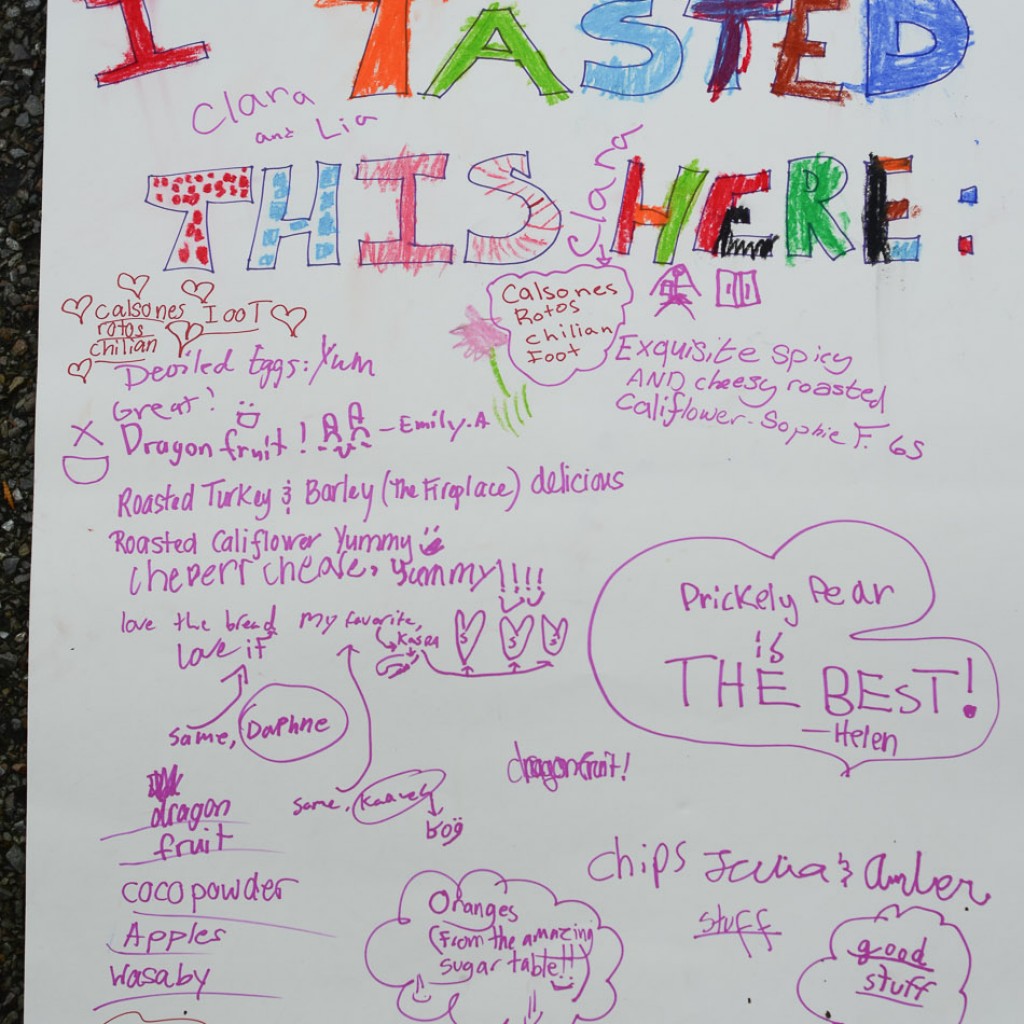 I TASTED
Clara
and Lia
Clara
THIS HERE:
Calsones IooT
rotos
chilian
Calsones
Rotos
chilian
Ioot
Exquisite spicy
AND cheesy roasted
Califlower - Sophie F. 6S
Deviled Eggs: Yum
Great!
Dragon fruit! - Emily.A
Roasted Turkey & Barley (The Fireplace) delicious
Roasted Califlower Yummy
yummy!!!!
love the bread
love it
My favorite,
same, Daphne
Prickely Pear
is
THE BEST!
-Helen
dragonfruit!
dragon
fruit
same,
coco powder
Apples
Wasaby
Oranges
(from the amazing
sugar table!!)
chips & Amber
stuff
good
stuff